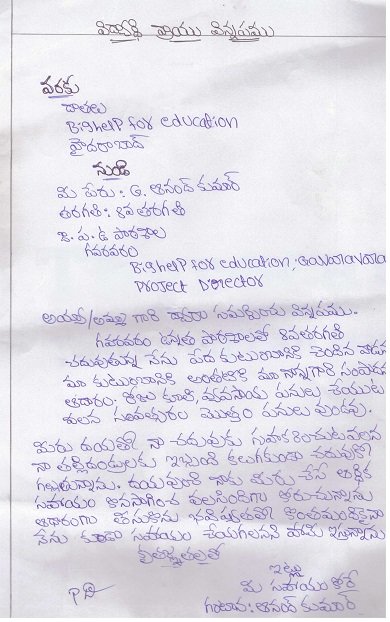 విద్యార్థి వ్రాయు విన్నపము
వరకు
దాతలు
Bighelp for education
హైదరాబాద్
నుండి
మీ పేరు: G. ఆనంద్ కుమార్
తరగతి: 8వ తరగతి
జి. ప. ఉ పాఠశాల
గవరవరం
Bighelp for education, Gavaravaram
Project Director
అయ్యా/అమ్మా గారి సమక్షమున విన్నపము.
గవరవరం ఉన్నత పాఠశాలలో 8వ తరగతి
చదువుతున్న నేను పేద కుటుంబానికి చెందిన వాడను
మా కుటుంబానికి అంతటికి మా నాన్నగారి సంపాదన
ఆధారం. రోజు కూలి, వ్యవసాయ పనులు చేయుట
వలన సంవత్సరం మొత్తం పనులు వుండవు.
మీరు దయతో నా చదువుకు సహకరించుటవలన
నా తల్లిదండ్రులకు ఇబ్బంది కలుగకుండా చదువుకో
గల్గుతున్నాను. దయవుంచి నాకు మీరు చేసే ఆర్థిక
సహాయం కొనసాగించ వలసిందిగా కోరుచున్నాను
ఆధారంగా తీసుకొని భవిష్యత్తులో కొంతమందికైనా
నేను కూడా సహాయం చేయగలనని హామీ ఇస్తున్నాను
కృతజ్ఞతలతో
ఇట్లు
మీ సహాయం కోరే
గంటాన: ఆనంద్ కుమార్